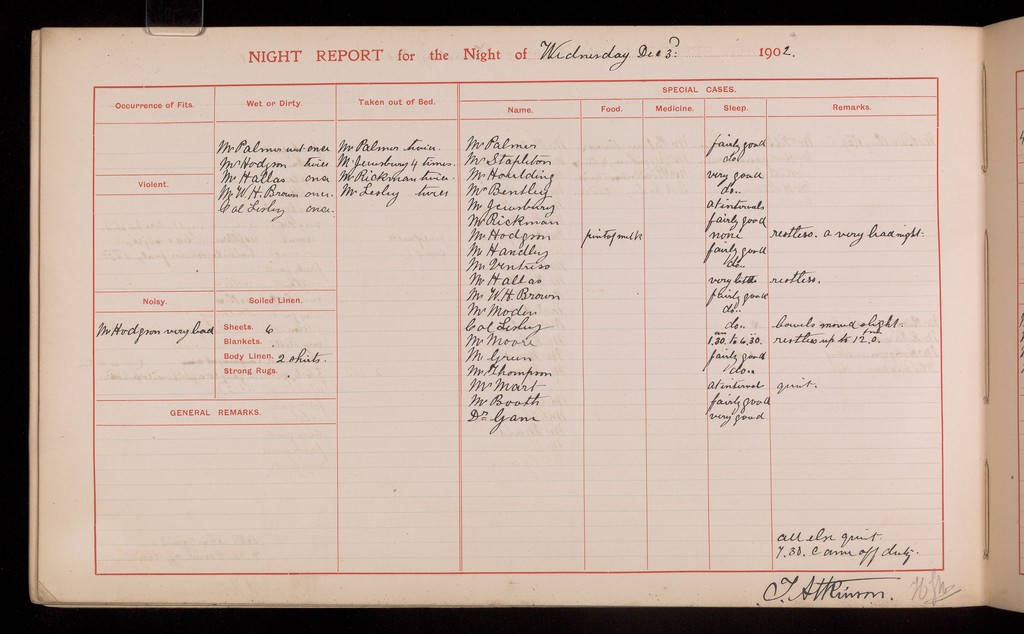 NIGHT REPORT for the Night of Wednesday Dec 3rd 1902.
Occurrence of Fits.
Wet or Dirty.
Taken out of Bed.
SPECIAL CASES.
Name. Food. Medicine. Sleep. Remarks.
Mr Palmer wet once
Mr Hodgson twice
Mr Hallas once
Mr W.H. Brown once.
Col Lesley once.
Mr Palmer twice.
Mr Jewsbury 4 times.
Mr Rickman twice.
Mr Lesley twice
Violent.
Noisy.
Mr Hodgson very bad
Soiled Linen.
Sheets. 6
Blankets.
Body Linen. 2 shirts.
Strong Rugs.
GENERAL REMARKS.
Mr Palmer fairly good
Mr Stapleton do..
Mr Houlding very good
Mr Bentley do..
Mr Jewsbury at intervals
Mr Rickman fairly good
Mr Hodgson pint of milk none restless. a very bad night.
Mr Handley fairly good
Mr Ventriss do..
Mr Hallas very little restless.
Mr W.H. Brown fairly good
Mr Moden do..
Col Lesley do.. bowels moved slight.
Mr Moore 1.30. to 6.30. am restless up to 12.0.
Mr Green fairly good
Mr Thompson do..
Mr Mart at interval quiet.
Mr Booth fairly good
Dr Gane very good
all else quiet.
7.30. Came off duty.
T. Atkinson.